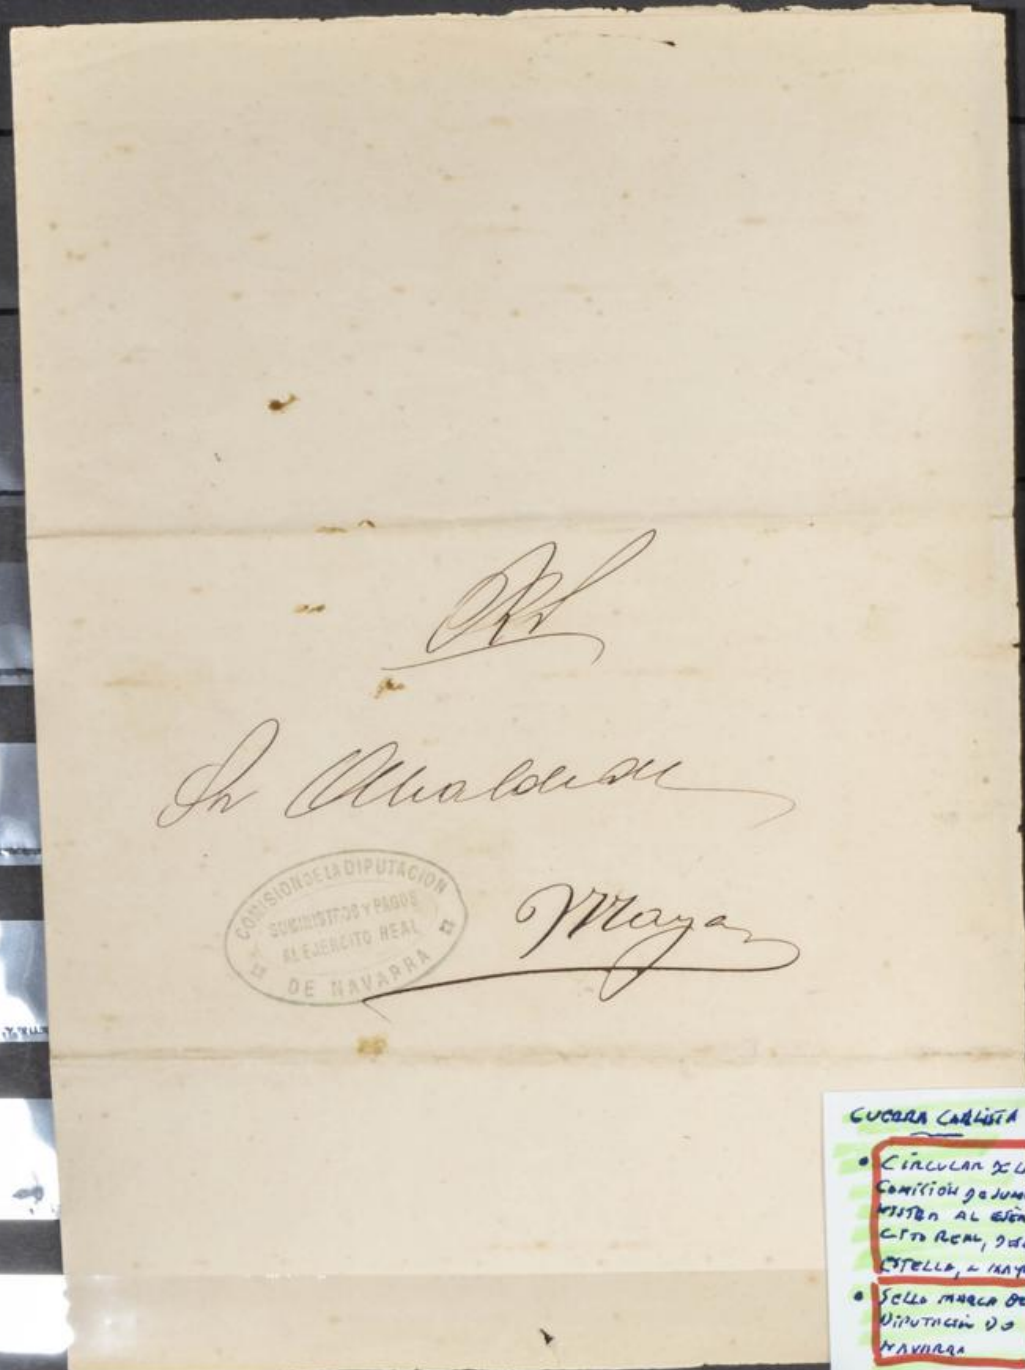 Sr Alcalde de
Maya
COMISION DE LA DIPUTACION
SUMINISTROS Y PAGOS
AL EJERCITO REAL
DE NAVARRA
GUERRA CARLISTA
• CIRCULAR DE LA
COMISIÓN DE SUMI
NISTRO AL EJÉR
CITO REAL, DES
ESTELLA, A MAYA
• SELLO MARCA DE
DIPUTACIÓN DE
NAVARRA